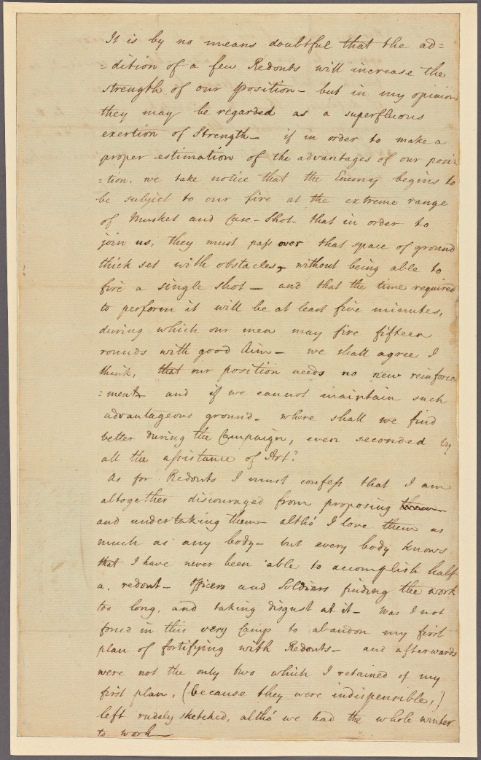 It is by no means doubtful that the ad=
=dition of a few Redouts will increase the
strength of our Position – but in my opinion
they may be regarded as a superfluous
exertion of Strength – if in order to make a
proper estimation of the advantages of our posi
=tion, we take notice that the Enemy begins to
be subject to our fire at the extreme range
of Musket and Case-Shot that in order to
join us, they must pass over that space of ground
thick set with obstacles, without being able to
fire a single shot – and that the time required
to perform it will be at least five minutes,
during which our men may fire fifteen
rounds with good Aim – we shall agree I
think, that our position needs no new reinforce
=ments and if we cannot maintain such
advantageous ground – where shall we find
better during the Campaign, even seconded by
all the assistance of Art?
As for Redouts I must confess that I am
altogether discouraged from proposing them
and undertaking them – altho' I love them as
much as any body – but every body knows
that I have never been able to accomplish half
a redout – Officers and Soldiers finding the work
too long, and taking disgust at it – Was I not
forced in this very Camp to abandon my first
plan of fortifying with Redouts – and afterwards
were not the only two which I retained of my
first plan, (because they were indispensible,)
left rudely sketched, altho' we had the whole winter
to work –